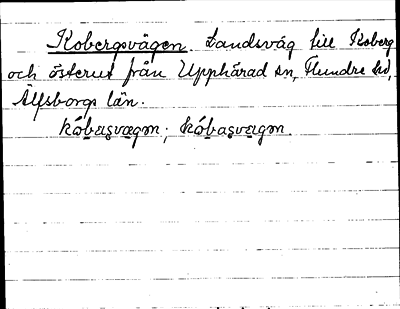 Kobergsvägen. Landsväg till Koberg
och österut från Upphärad sn, Flundre hd,
Älfsborgs län.
kóbasvægən; kóbasvægən.